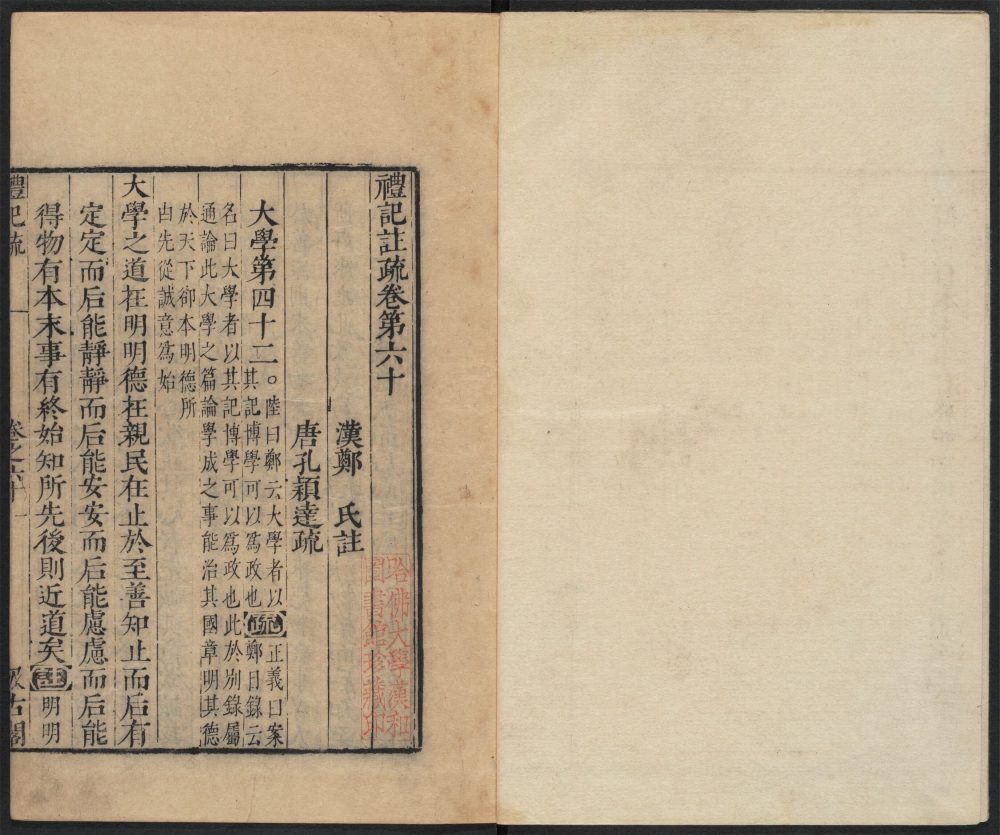 禮記註疏卷第六十
漢鄭 氏註
唐孔穎達疏
哈佛大學漢和
圖書館珍藏印
大學第四十二。陸曰鄭云大學者以
其記博學可以爲政也疏正義曰案鄭目錄云
名曰大學者以其記博學可以爲政也此於別錄屬
通論此大學之篇論學成之事能治其國章明其德
於天下卻本明德所
由先從誠意爲始
大學之道在明明德在親民在止於至善知止而后有
定定而后能靜靜而后能安安而后能慮慮而后能
得物有本末事有終始知所先後則近道矣註明明
禮記疏 卷之六十 一 汲古閣